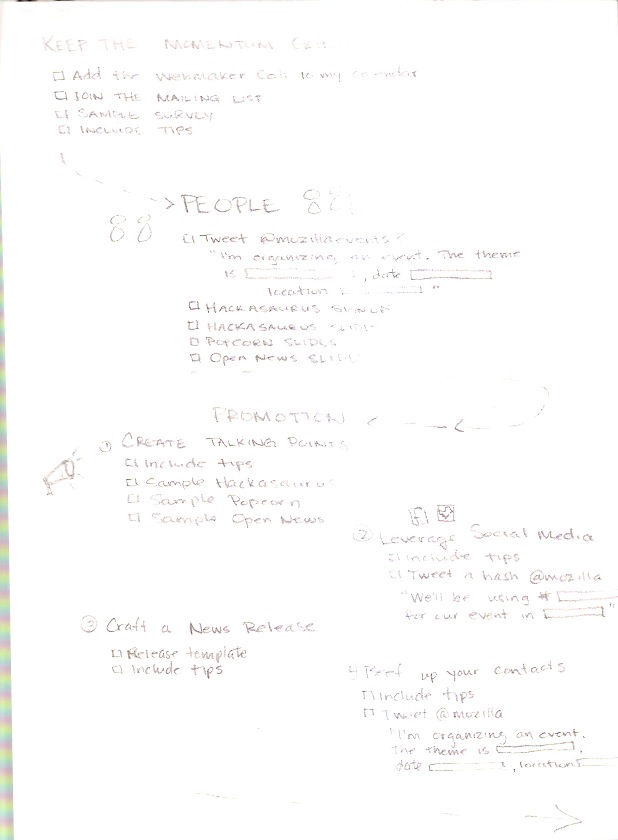 KEEP THE MOMENTUM
Add the Webmaker Call to my calendar
JOIN THE MAILING LIST
SAMPLE SURVEY
INCLUDE TIPS
PEOPLE
Tweet @mozillaevents?
"I'm organizing an event. The theme
is , date
location "
HACKASAURUS SIGNUP
HACKASAURUS SLIDE
POPCORN SLIDES
Open News SLIDE
PROMOTION
① CREATE TALKING POINTS
Include tips
Sample Hackasaurus
Sample Popcorn
Sample Open News
② Leverage Social Media
Include tips
Tweet a hash @mozilla
"We'll be using #
for our event in "
③ Craft a News Release
Release template
Include tips
4 Beef up your contacts
Include tips
Tweet @mozilla
"I'm organizing an event.
The theme is ,
date , location